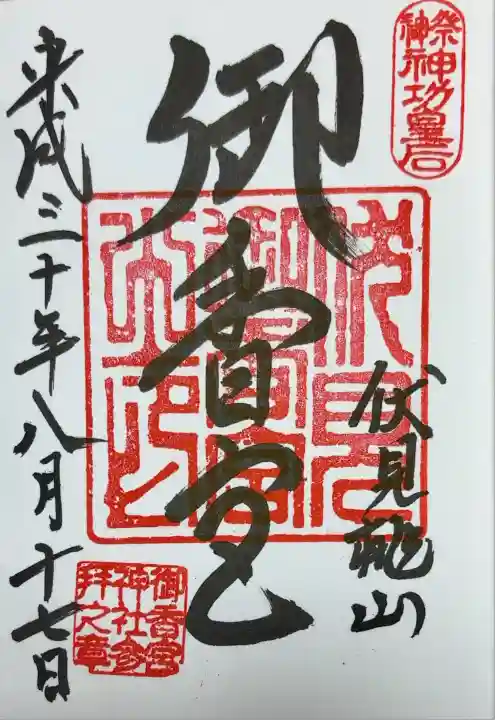 祭神
神功皇后
伏見桃山
御香宮
伏見
御香宮
平成三十年八月十七日
御香宮
神社参
拝之章